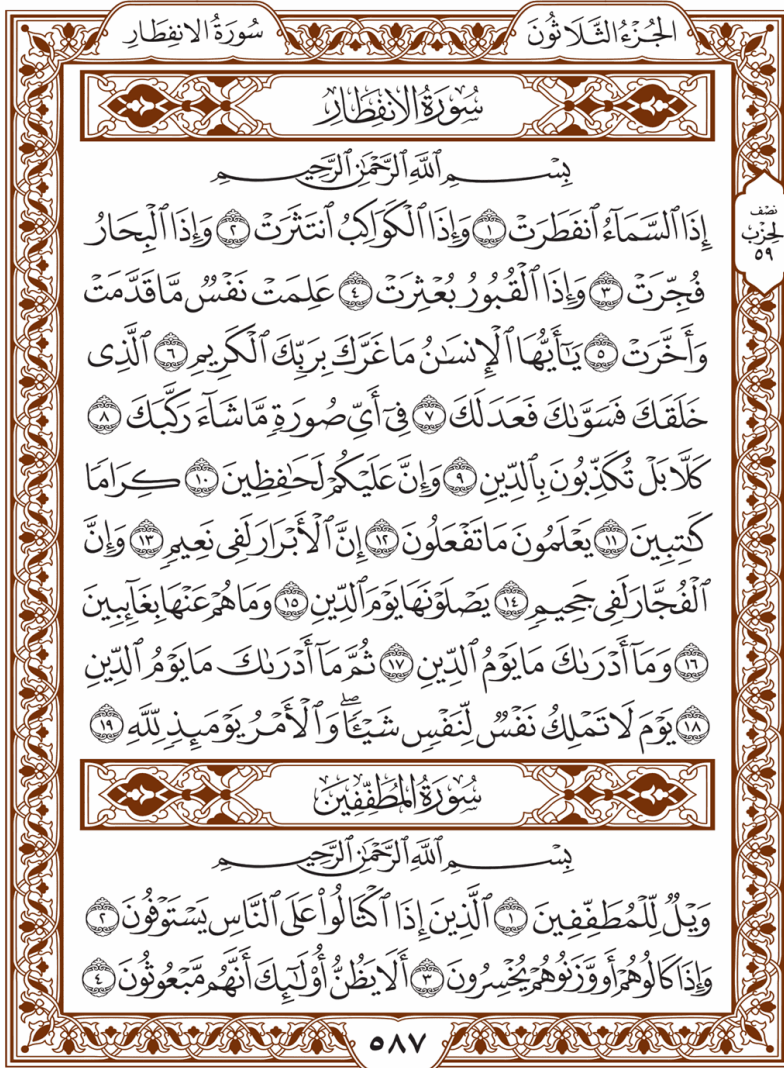 الجُزْءُ الثَّلَاثُونَ
سُورَةُ الانفِطَارِ
سُورَةُ الانفِطَارِ
بِسْمِ ٱللَّهِ ٱلرَّحْمَٰنِ ٱلرَّحِيمِ
إِذَا ٱلسَّمَآءُ ٱنفَطَرَتْ ١ وَإِذَا ٱلْكَوَاكِبُ ٱنتَثَرَتْ ٢ وَإِذَا ٱلْبِحَارُ
فُجِّرَتْ ٣ وَإِذَا ٱلْقُبُورُ بُعْثِرَتْ ٤ عَلِمَتْ نَفْسٌ مَّا قَدَّمَتْ
وَأَخَّرَتْ ٥ يَٰٓأَيُّهَا ٱلْإِنسَٰنُ مَا غَرَّكَ بِرَبِّكَ ٱلْكَرِيمِ ٦ ٱلَّذِى
خَلَقَكَ فَسَوَّىٰكَ فَعَدَلَكَ ٧ فِىٓ أَىِّ صُورَةٍ مَّا شَآءَ رَكَّبَكَ ٨
كَلَّا بَلْ تُكَذِّبُونَ بِٱلدِّينِ ٩ وَإِنَّ عَلَيْكُمْ لَحَٰفِظِينَ ١٠ كِرَامًا
كَٰتِبِينَ ١١ يَعْلَمُونَ مَا تَفْعَلُونَ ١٢ إِنَّ ٱلْأَبْرَارَ لَفِى نَعِيمٍ ١٣ وَإِنَّ
ٱلْفُجَّارَ لَفِى جَحِيمٍ ١٤ يَصْلَوْنَهَا يَوْمَ ٱلدِّينِ ١٥ وَمَا هُمْ عَنْهَا بِغَآئِبِينَ
١٦ وَمَآ أَدْرَىٰكَ مَا يَوْمُ ٱلدِّينِ ١٧ ثُمَّ مَآ أَدْرَىٰكَ مَا يَوْمُ ٱلدِّينِ
١٨ يَوْمَ لَا تَمْلِكُ نَفْسٌ لِّنَفْسٍ شَيْـًٔا ۖ وَٱلْأَمْرُ يَوْمَئِذٍ لِّلَّهِ ١٩
سُورَةُ المُطَفِّفِينَ
بِسْمِ ٱللَّهِ ٱلرَّحْمَٰنِ ٱلرَّحِيمِ
وَيْلٌ لِّلْمُطَفِّفِينَ ١ ٱلَّذِينَ إِذَا ٱكْتَالُوا۟ عَلَى ٱلنَّاسِ يَسْتَوْفُونَ ٢
وَإِذَا كَالُوهُمْ أَو وَّزَنُوهُمْ يُخْسِرُونَ ٣ أَلَا يَظُنُّ أُو۟لَٰٓئِكَ أَنَّهُم مَّبْعُوثُونَ ٤
نصف
الحزب
٥٩
٥٨٧